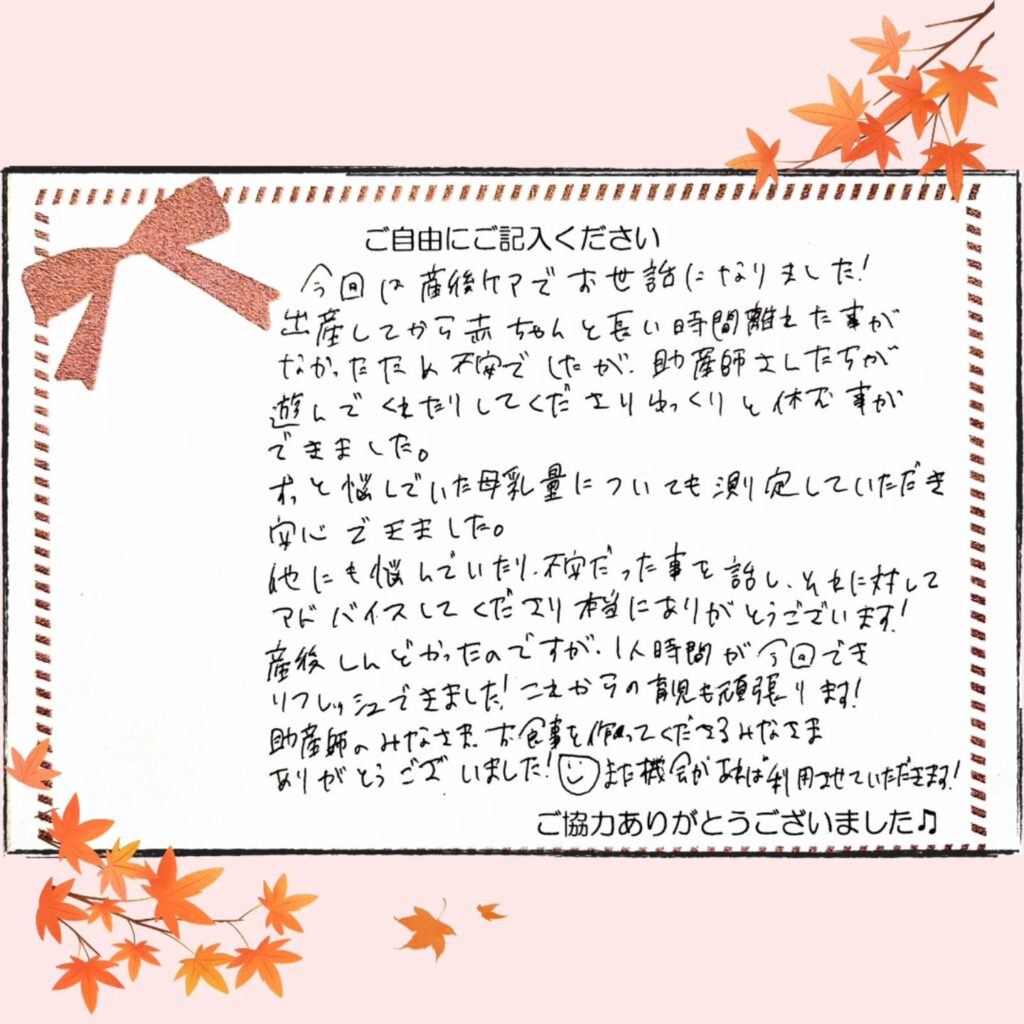 ご自由にご記入ください
今回は産後ケアでお世話になりました!
出産してから赤ちゃんと長い時間離れた事が
なかったため不安でしたが、助産師さんたちが
遊んでくれたりしてくださりゆっくりと休む事が
できました。
ずっと悩んでいた母乳量についても測定していただき
安心できました。
他にも悩んでいたり、不安だった事を話し、それに対して
アドバイスしてくださり本当にありがとうございます!
産後しんどかったのですが、1人時間が今回でき
リフレッシュできました!これからの育児も頑張ります!
助産師のみなさま、お食事を作ってくださるみなさま
ありがとうございました!また機会があれば利用させていただきます!
ご協力ありがとうございました♫